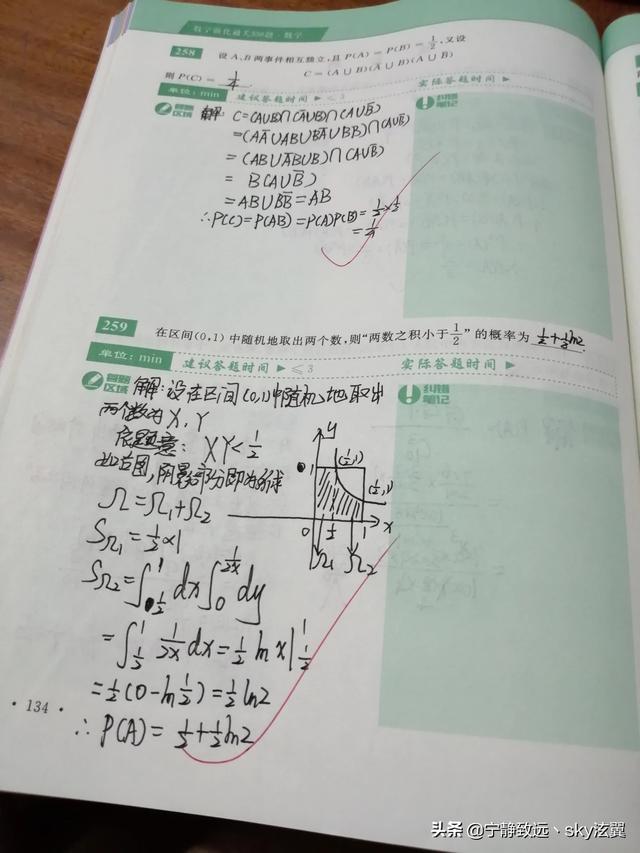 数学强化通关330题·数学
258 设 A、B 两事件相互独立,且 P(A) = P(B) = 1/2,又设
C = (A ∪ B)(Ā ∪ B)(A ∪ B̄)
则 P(C) = 1/4
单位:min 建议答题时间 ▶ ≤3 实际答题时间 ▶
答题区域 纠错笔记
解: C=(A∪B)∩(Ā∪B)∩(A∪B̄)
=(AĀ∪AB∪BĀ∪BB)∩(A∪B̄)
=(AB∪ĀB∪B)∩(A∪B̄)
= B(A∪B̄)
=AB∪BB̄=AB
∴P(C)=P(AB)=P(A)P(B)=1/2×1/2
=1/4
259 在区间(0,1)中随机地取出两个数,则“两数之积小于1/2”的概率为 1/2+1/2ln2.
单位:min 建议答题时间 ▶ ≤3 实际答题时间 ▶
答题区域 纠错笔记
解:设在区间(0,1)中随机地取出
两个数为X,Y
依题意: XY<1/2
如右图,阴影部分即为所求
Ω=Ω₁+Ω₂
y
1 (1/2,1)
(1/2,1)
0 1/2 1 x
Ω₁ Ω₂
SΩ₁=1/2×1
SΩ₂=∫_{1/2}^{1}dx∫_{0}^{1/2x}dy
=∫_{1/2}^{1} 1/2x dx=1/2 ln x|_{1/2}^{1}
=1/2(0-ln1/2)=1/2ln2
∴ P(A)=1/2+1/2ln2
·134·
头条@宁静致远丶sky泫翼